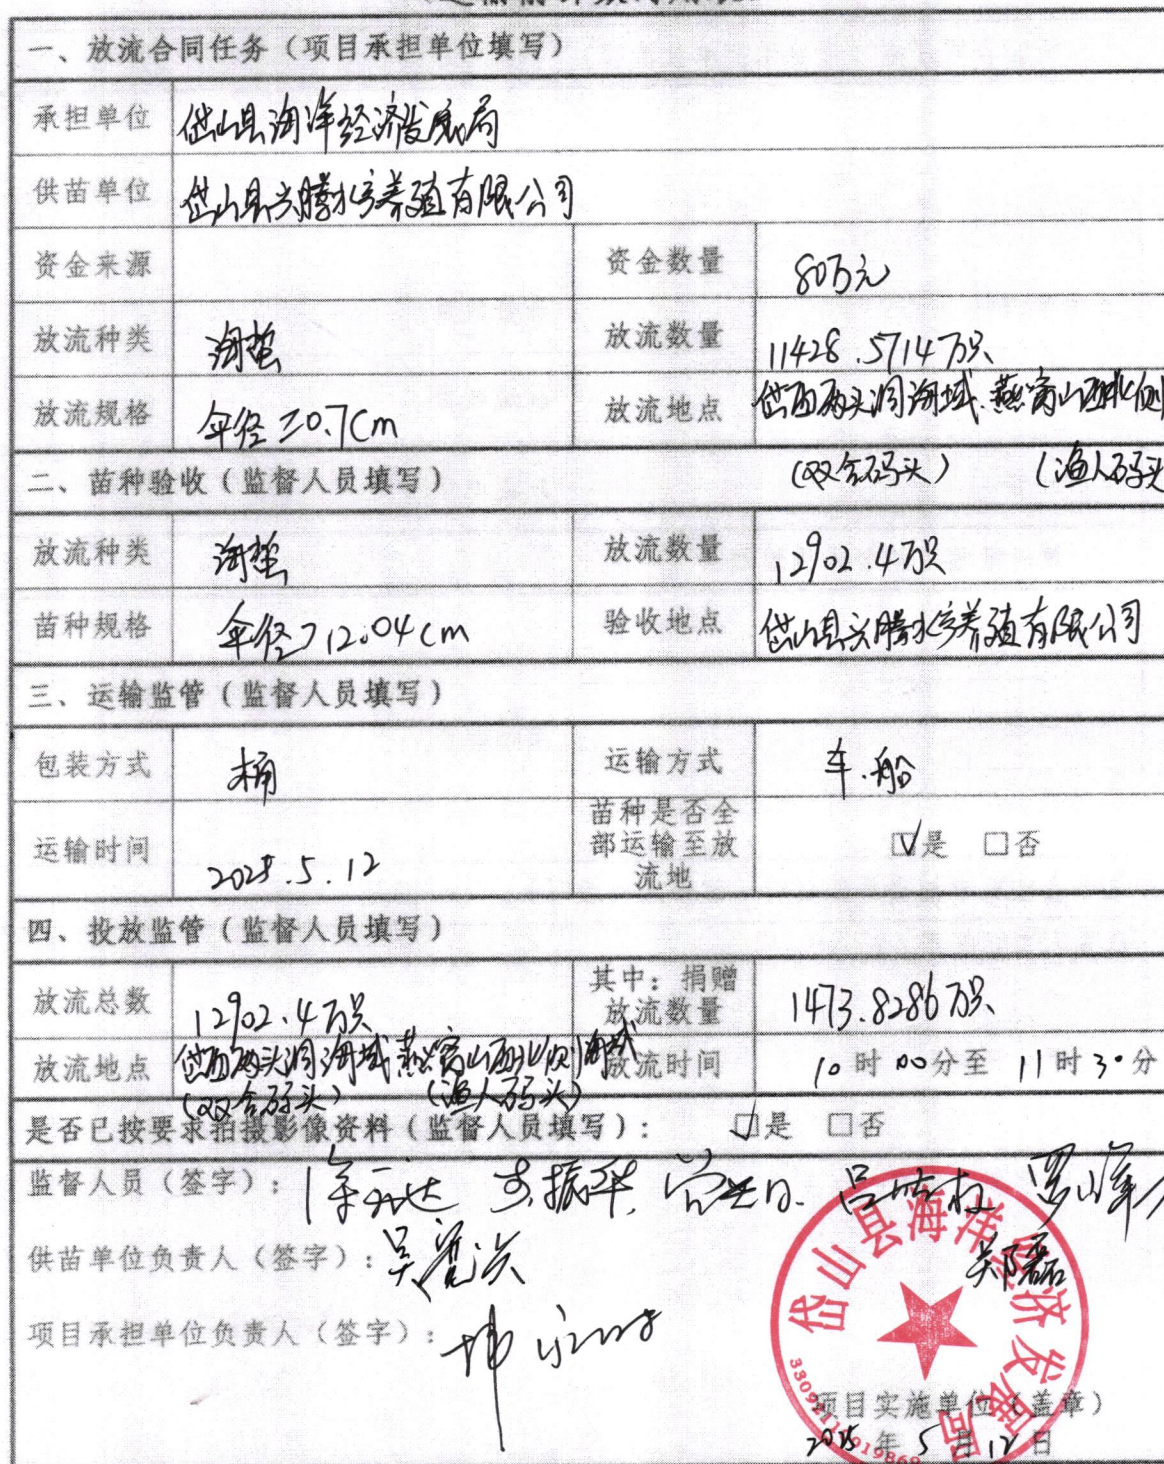 一、放流合同任务（项目承担单位填写）
承担单位 岱山县海洋经济发展局
供苗单位 岱山县兴腾水产养殖有限公司
资金来源 资金数量 80万元
放流种类 海蜇 放流数量 11428.5714万只
放流规格 伞径≥0.7cm 放流地点 岱西两头洞海域、燕窝山西北侧
（双合码头） （渔人码头
二、苗种验收（监督人员填写）
放流种类 海蜇 放流数量 12902.4万只
苗种规格 伞径 12.04cm 验收地点 岱山县兴腾水产养殖有限公司
三、运输监管（监督人员填写）
包装方式 桶 运输方式 车.船
运输时间 2025.5.12 苗种是否全部运输至放流地 ☑是 □否
四、投放监管（监督人员填写）
放流总数 12902.4万只 其中：捐赠放流数量 1473.8286万只
放流地点 岱西两头洞海域、燕窝山西北侧海域 放流时间 10时00分至11时30分
（双合码头） （渔人码头）
是否已按要求拍摄影像资料（监督人员填写）： ☑是 □否
监督人员（签字）：
供苗单位负责人（签字）：
项目承担单位负责人（签字）：
岱山县海洋经济发展局
项目实施单位（盖章）
2025年5月12日